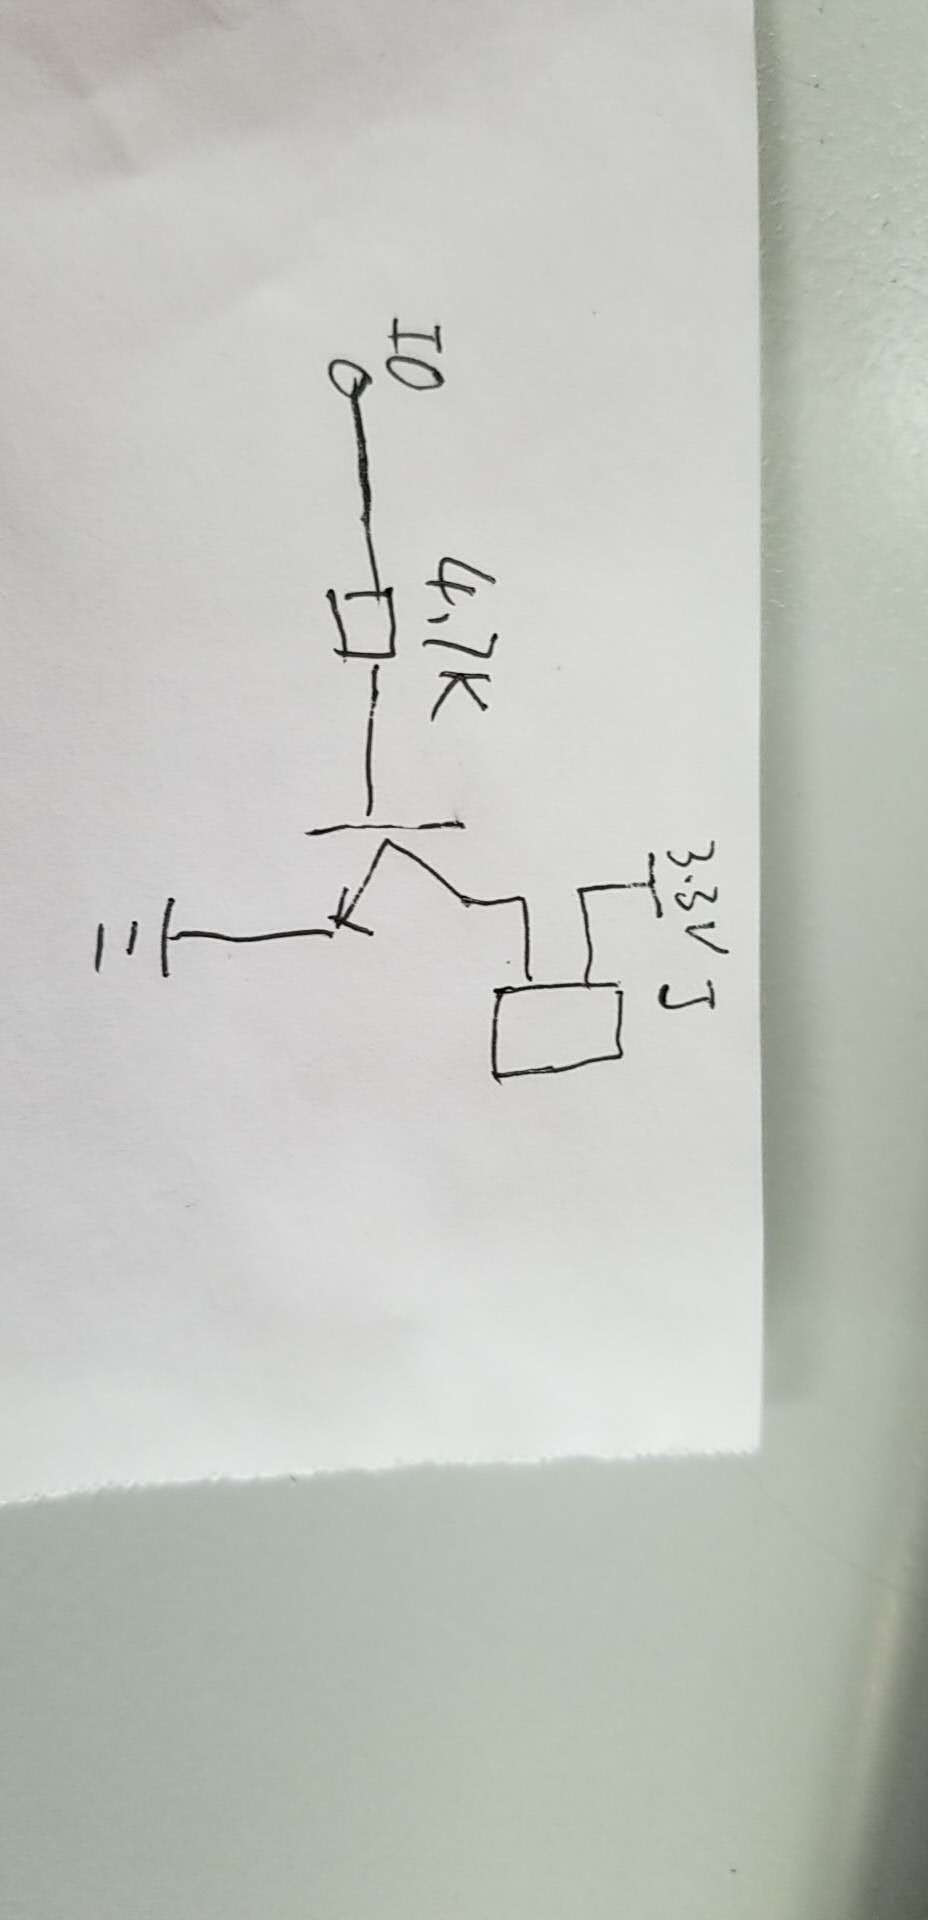 IO
4.7K
3.3V J